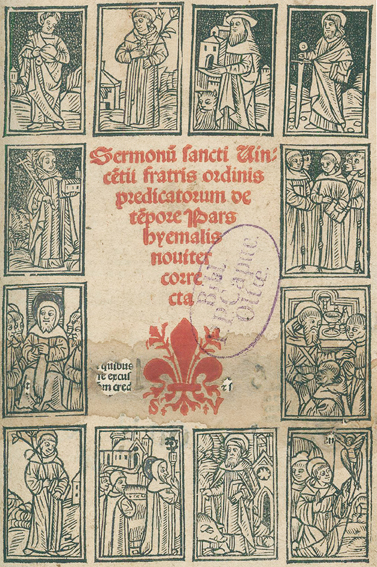 Sermonū sancti Uin⸗
cētii fratris ordinis
predicatorum de
tēpore Pars
hyemalis
noviter
corre
cta
Bibl.
P. Capuc.
quibus
excul
cred